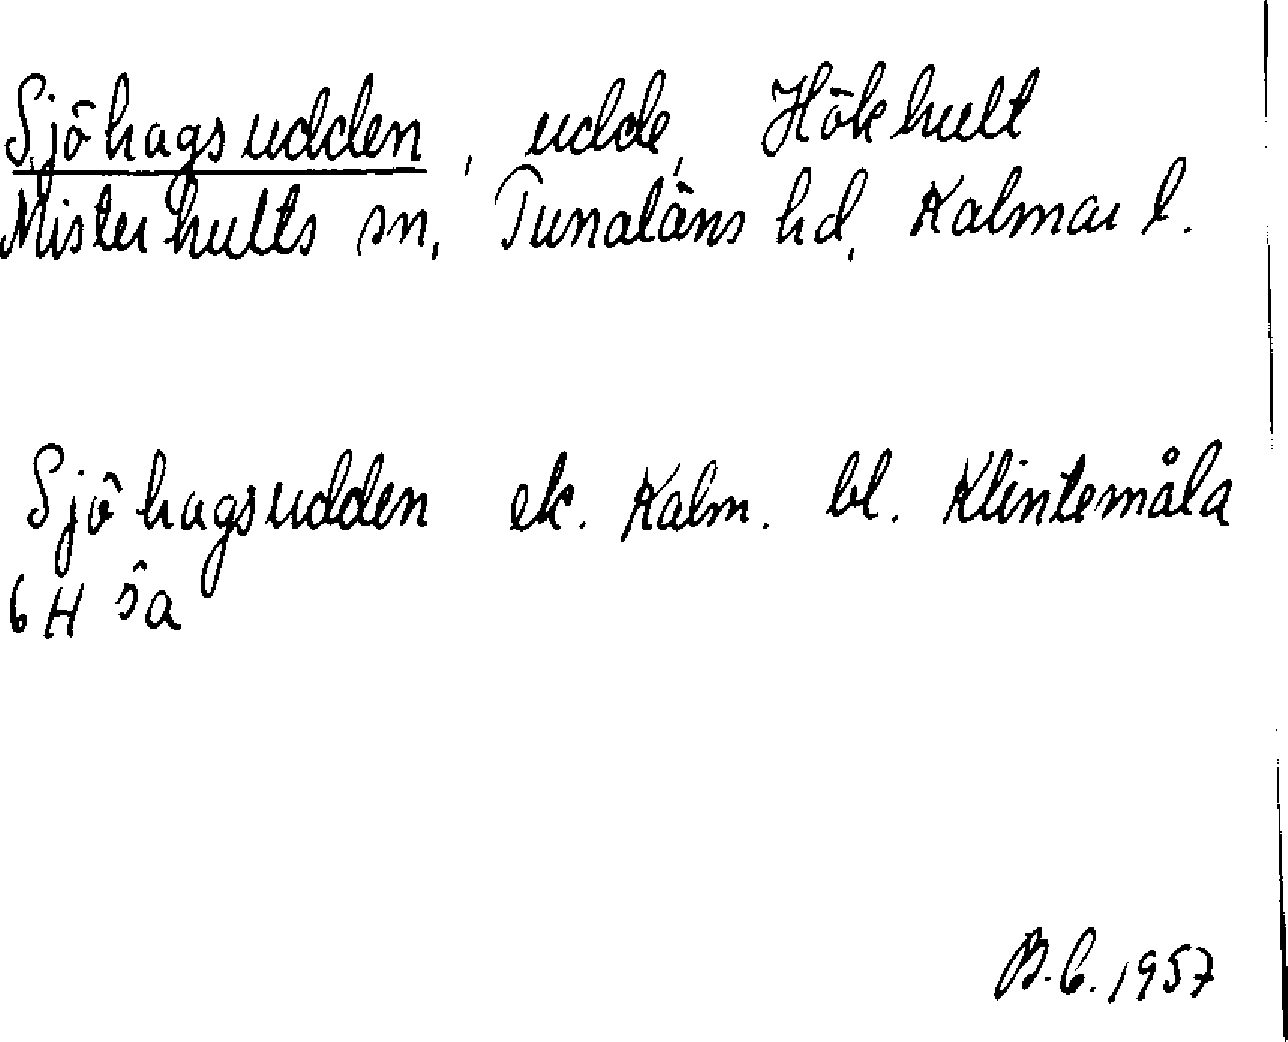 Sjöhagsudden, udde, Hökhult
Misterhults sn, Tunaläns hd, Kalmar l.
Sjöhagsudden ek. Kalm. bl. Klintemåla
6 H öa
B.C. 1957